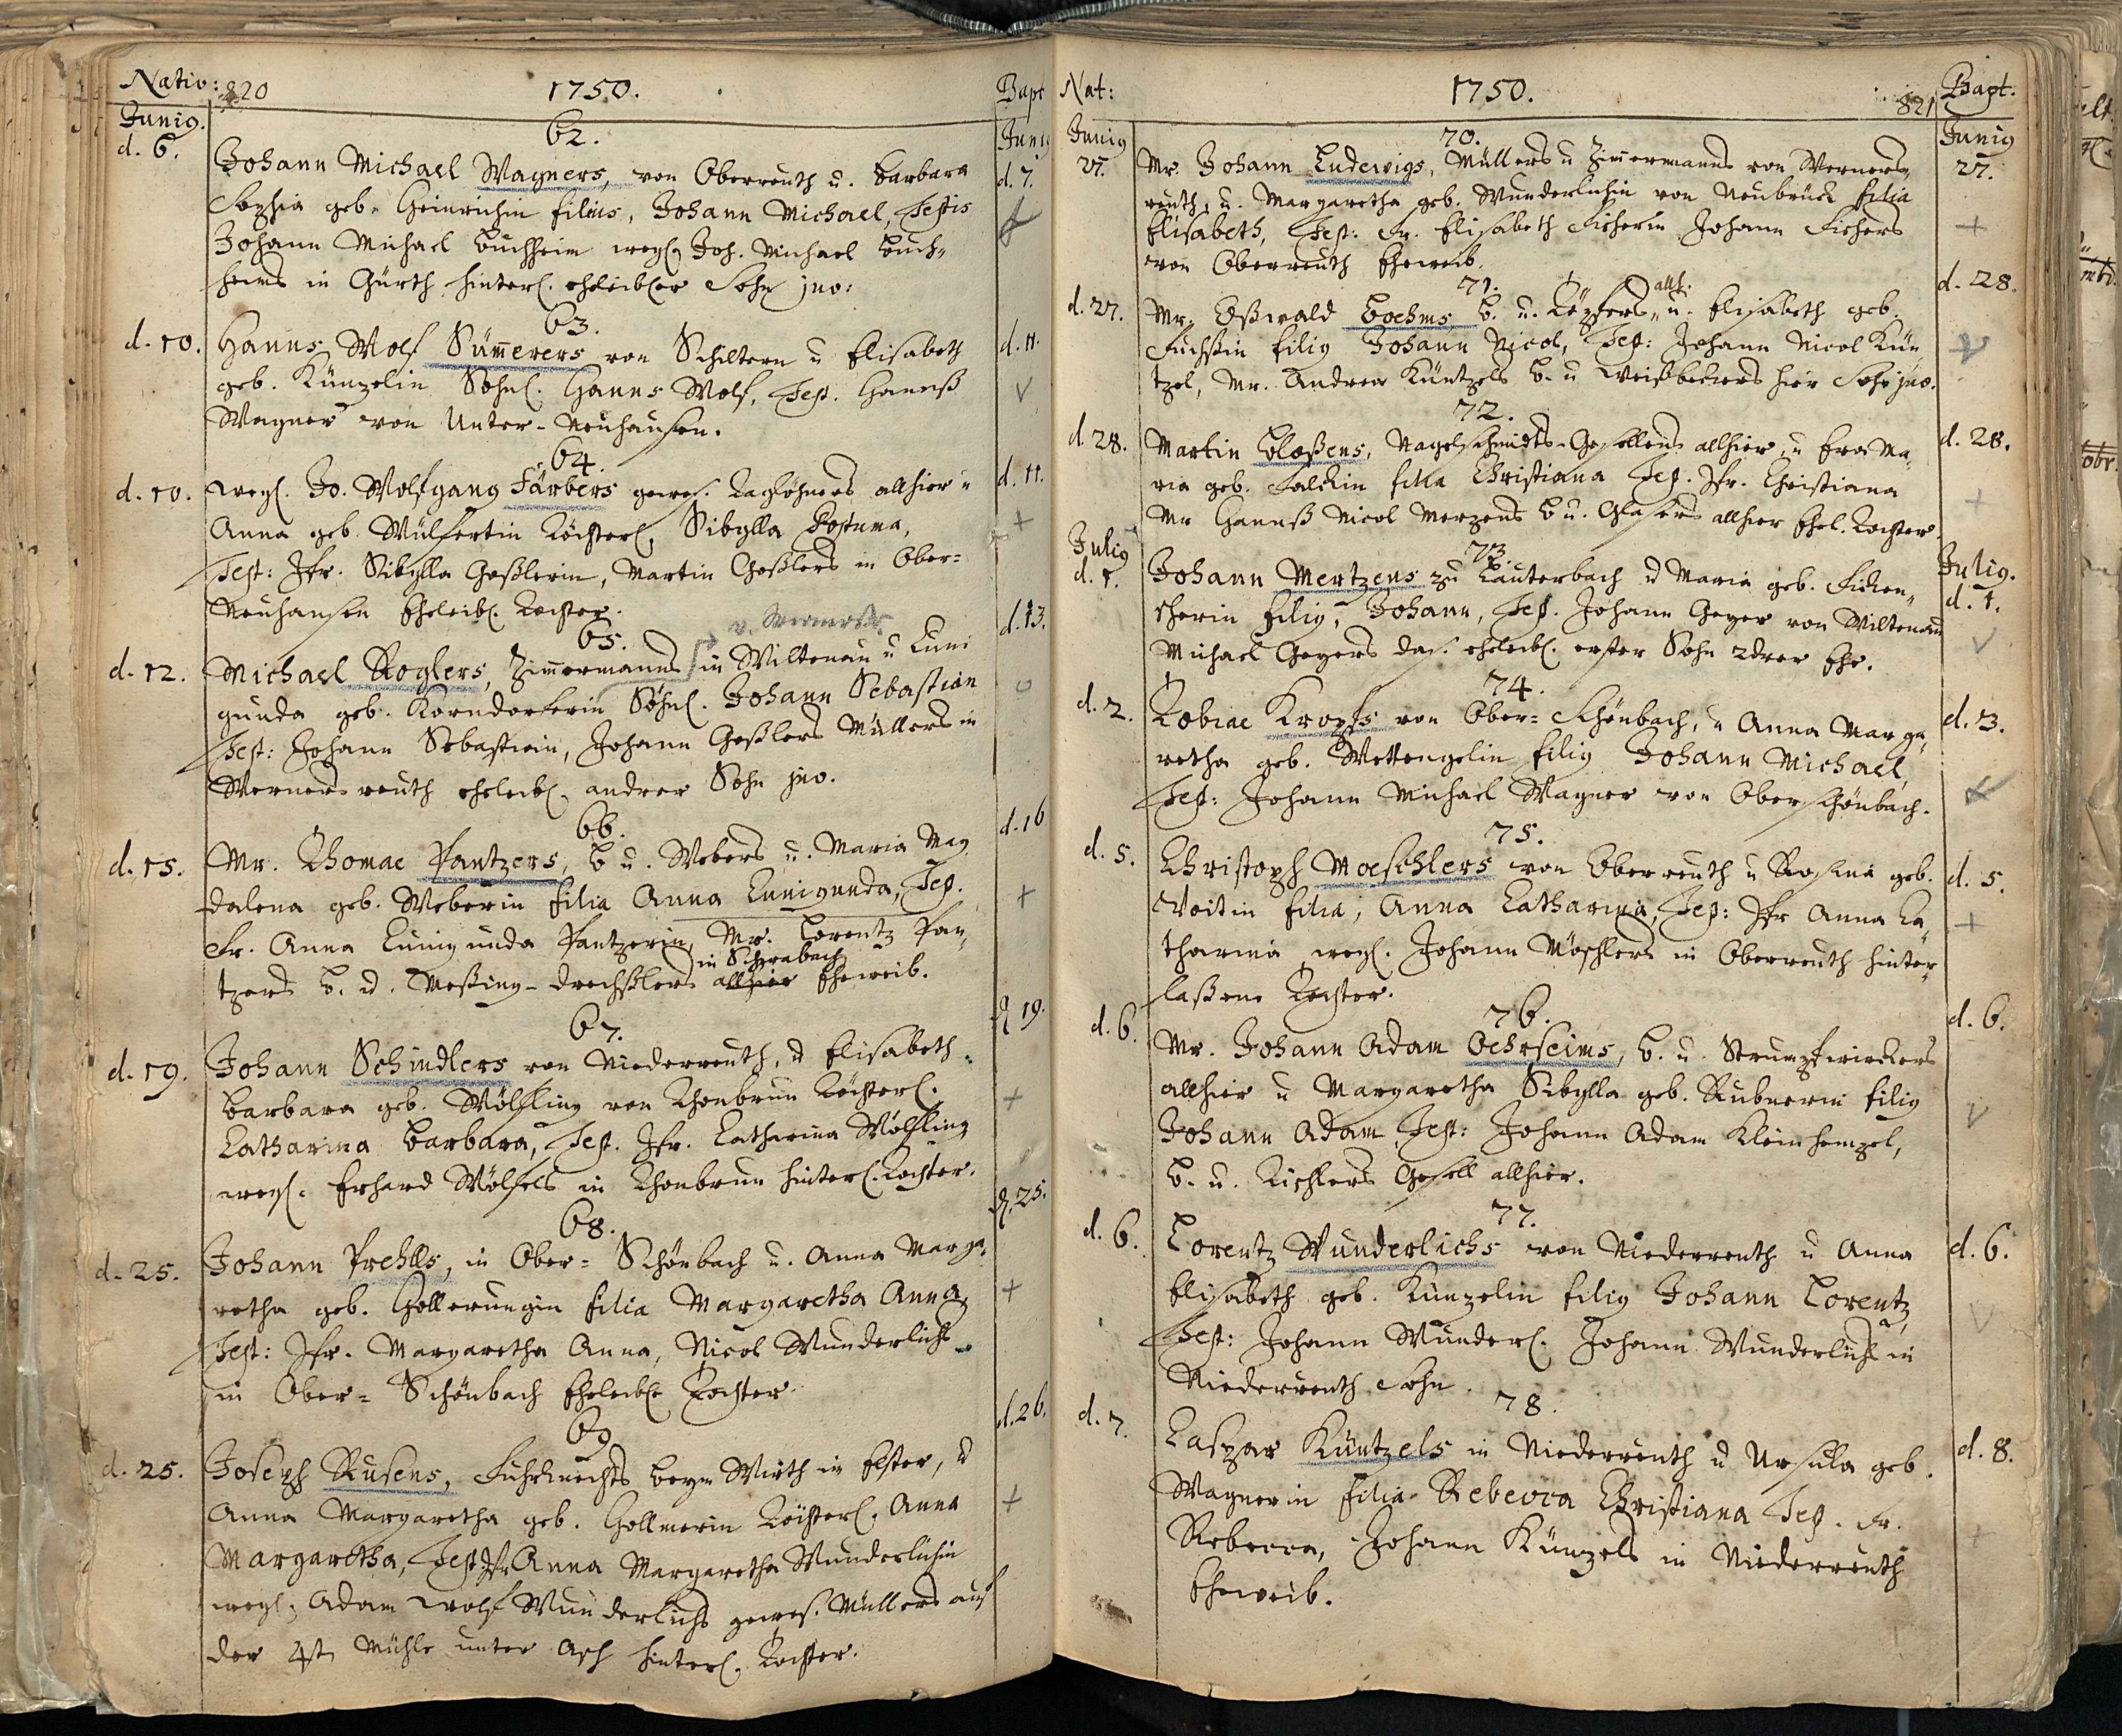 Nativ: 820 1750. Bapt
Junig. Junig
62.
d. 6. Johann Michael Wagners, von Oberreuth u. Barbara d. 7.
Sophia geb. Heinrichin filius, Johann Michael, Testis
Johann Michael Buchheim wegl. Joh. Michael Buch-
heims in Gürth hinterl. ehelicher Sohn juv:
63.
d. 10. Hanns Wolf Sümerers von Schiltern u Elisabeth d. 11.
geb. Künzelin Söhnl. Hanns Wolf, Test. Hannß
Wagner von Unter-Neuhausen.
64.
d. 10. wegl. Jo. Wolfgang Färbers gewes. Taglöhners allhier u d. 11.
Anna geb. Wülfertin Töchterl. Sibylla Postuma,
Test: Jfr. Sibylla Geßlerin, Martin Geßlers in Ober-
Neuhausen Eheleibl. Tochter.
65. d. 13.
d. 12. Michael Roglers, Zimermanns in Wiltenau u Cuni
gunda geb. Korndörferin Söhnl. Johann Sebastian
Test: Johann Sebastian, Johann Geßlers Müllers in
Wernersreuth eheleibl. andrer Sohn juv.
66. d. 16
d. 15. Mr. Thomae Pantzers, B u. Webers u. Maria Mag
dalena geb. Weberin filia Anna Cunigunda, Test.
Fr. Anna Cunigunda Pantzerin, Mr. Lorentz Pan-
in Schwabach
tzers B. u. Meßing-Drechßlers allhier Eheweib.
67. d. 19.
d. 19. Johann Schindlers von Niederreuth, u Elisabeth
Barbara geb. Wölfling von Thonbrun Töchterl.
Catharina Barbara, Test. Jfr. Catharina Wölfling
wegl. Erhard Wölfels in Thonbrun hinterl. Tochter.
68. d. 25.
d. 25. Johann Prehls, in Ober-Schönbach u. Anna Marga-
retha geb. Hollerungin filia Margaretha Anna,
Test: Jfr. Margaretha Anna, Nicol Wunderlichs
in Ober-Schönbach Eheleibl. Tochter
69. d. 26.
d. 25. Joseph Rusens, Fuhrknechts beym Wirth in Elster, u
Anna Margaretha geb. Hollmerin Töchterl. Anna
Margaretha, Test Jfr Anna Margaretha Wunderlichin
wegl. Adam Wolf Wunderlichs gewes. Müllers auf
der 4ten Mühle unter Asch hinterl. Tochter.
Nat: 1750. 821 Bapt.
Junig Junig
70.
27. Mr. Johann Ludewigs, Müllers u Zimermanns von Werners- 27.
reuth, u. Margaretha geb. Wunderlichin von Neubrück filia
Elisabeth, Test: Fr. Elisabeth Fischerin Johann Fischers
von Oberreuth Eheweib.
71. d. 28.
allh.
d. 27. Mr. Oßwald Boehms B. u. Töpfers, u. Elisabeth geb.
Fuchßin filig Johann Nicol, Test: Johann Nicol Kün-
tzel, Mr. Andrea Küntzels B. u Weißbeckers hier Sohn juv.
72.
d. 28. Martin Bloßens, Nagelschmidts-Gesellens allhier, u Eva Ma- d. 28.
ria geb. Falckin filia Christiana Test. Jfr. Christiana
Mr Hannß Nicol Merzens B u. Glasers allhier Ehel. Tochter.
Julig 73. Julig.
d. 1. Johann Mertzens zu Lauterbach u Maria geb. Ficken- d. 1.
scherin filig, Johann, Test. Johann Geyer von Wiltenau
Michael Geyers das. eheleibl. erster Sohn 2drer Ehe.
74.
d. 2. Tobiae Kropfs von Ober-Schönbach, u Anna Marga- d. 3.
retha geb. Wettengelin filig Johann Michael,
Test: Johann Michael Wagner von Oberschönbach.
75.
d. 5. Christoph Moeschlers von Oberreuth u Rosina geb. d. 5.
Voitin filia, Anna Catharina, Test: Jfr Anna Ca-
tharina wegl. Johann Möschlers in Oberreuth hinter-
laßene Tochter.
76. d. 6.
d. 6. Mr. Johann Adam Oehrleims, B. u. Strumpfwirckers
allhier u Margaretha Sibylla geb. Rubnerin filig
Johann Adam Test: Johann Adam Kleinhempel,
B. u. Tischlers Gesell allhier.
77.
d. 6. Lorentz Wunderlichs von Niederreuth u Anna d. 6.
Elisabeth geb. Künzelin filig Johann Lorentz,
Test: Johann Wunderl. Johann Wunderlichs in
Niederreuth Sohn.
78.
d. 7. Caspar Küntzels in Niederreuth u Ursula geb. d. 8.
Wagnerin filia Rebecca Christiana Test. Fr.
Rebecca, Johann Künzels in Niederreuth
Eheweib.